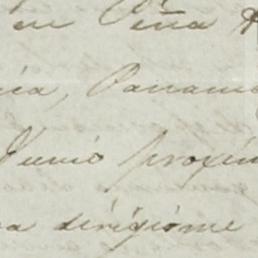 en Peña
ica, Panamá
Junio proxim
a dirigióme